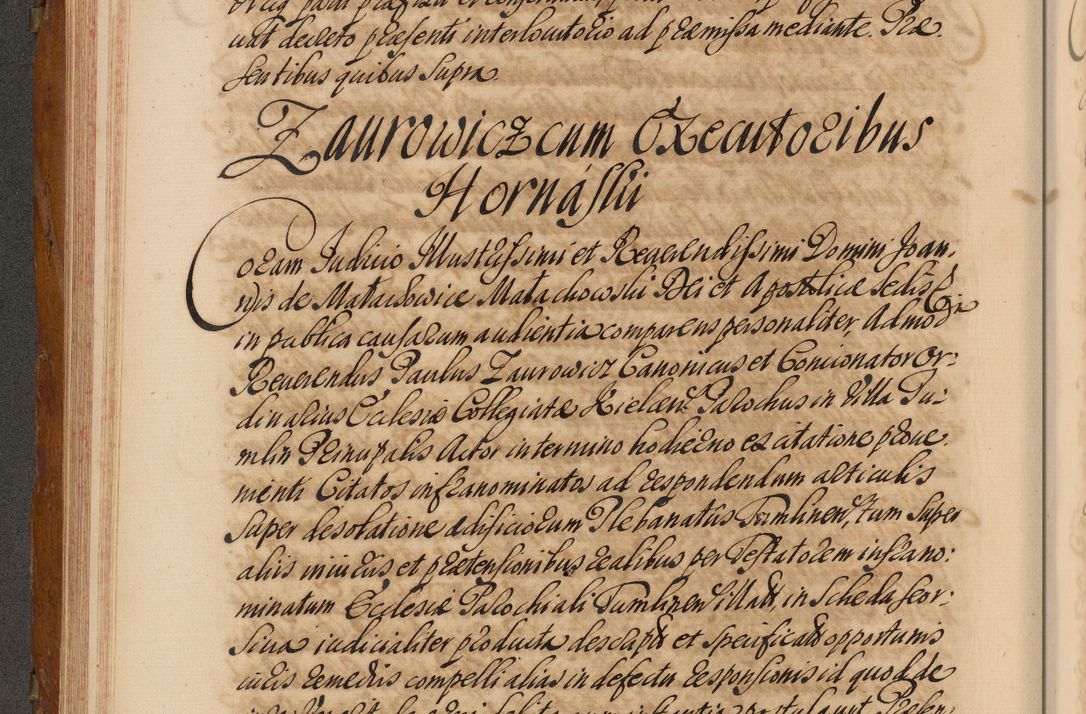 uat decreto præsenti interlocutorio ad præmissa mediante. Præ
sentibus quibus supra
Zaurowicz cum Executoribus
Hornáski
Coram Judicio Illustrissimi et Reverendissimi Domini Joan,
nis de Małachowice Małachowski Dei et Apostolicæ Sedis Gra
in publica causarum audientia comparens personaliter Admod
Reuerendus Paulus Zaurowicz Canonicus et Concionator Or:
dinarius Ecclesiæ Collegiatæ Kielcen Parochus in Villa Tu:
mlin Principalis Actor in termino hodierno ex citatione prove
nienti Citatos infranominatos ad respondendum articulis
super desolatione ædificiorum Plebanatûs Tumlinen, tum super
aliis iniuriis et prætensionibus realibus per Testatorem infrano:
minatum Ecclesiæ Parochiali Tumlinen illatis, in Scheda seor:
siva iudicialiter producta descriptis et specificatis opportunis
iuris remediis compelli alias in defectu responsionis id quod de